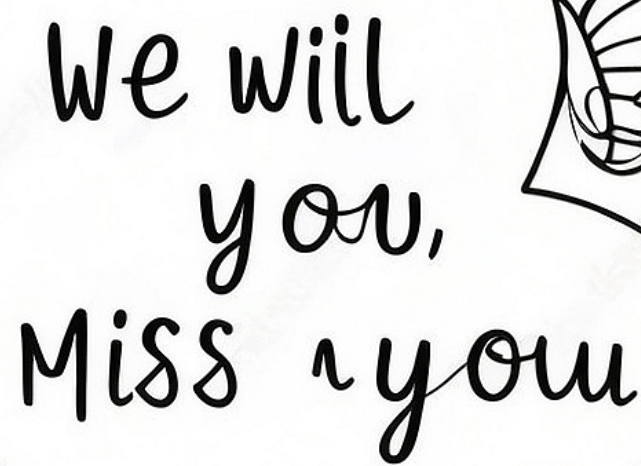 We wiil
you,
Miss youu